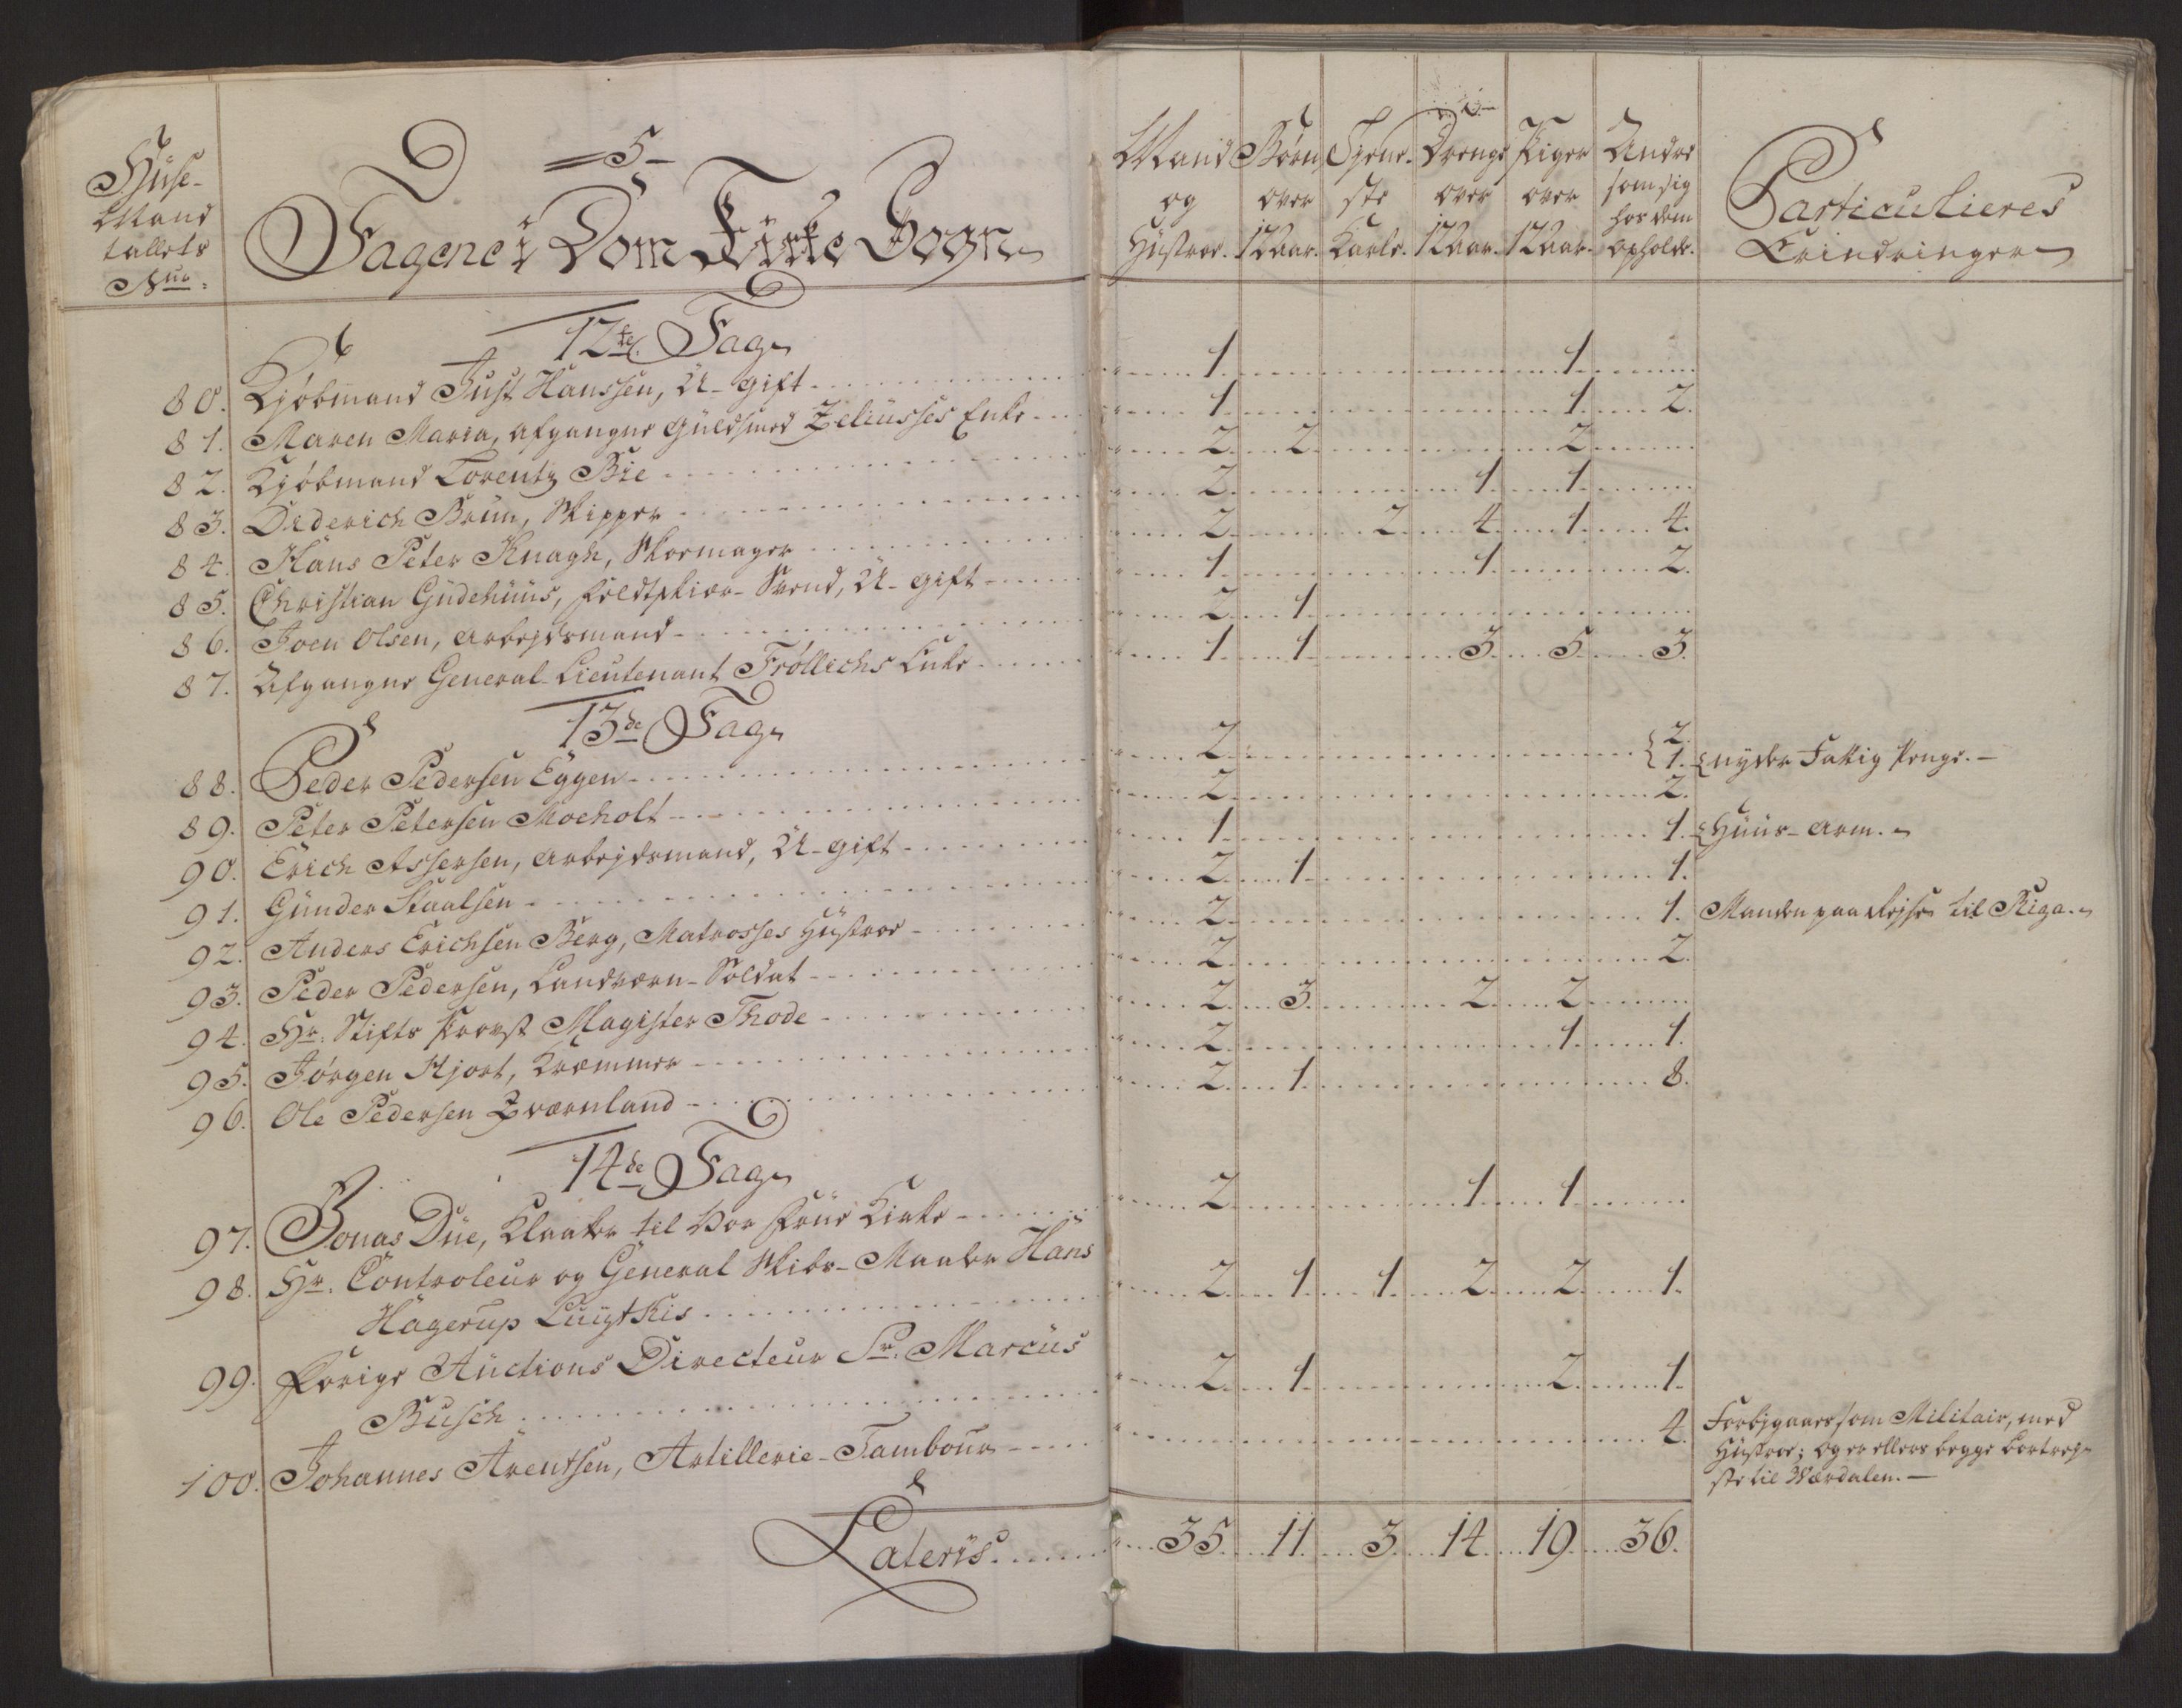 =5-
Huse-
Mand
tallets
Nur.
Tagene i Dom Kirke Sogn
Mand og Hustroe.
Børn over 12 Aar.
Tjene-ste Karle.
Drenge over 12 Aar.
Piger over 12 Aar.
Andre som sig hos dem opholde.
Particulieres Erindringer
12te Tag
80. Kjøbmand Just Hanssen, U-gift 1 1
81. Maren Maria, afgangne Guldsmed Zeliusses Enke 1 1 2.
82. Kjøbmand Lorentz Bie 2 2 2
83. Diderich Brun, Skipper 2 1 1
84. Hans Peter Knagh, Skoemager 2 2 4 1 4.
85. Christian Gudehuus, Feldtskiær-Svend, U-gift 1 1 2.
86. Joen Olsen, Arbejdsmand 2 1
87. Afgangne General-Lieutenant Frøllichs Enke 1 1 3 5 3.
13de Tag
88. Peder Pedersen Eggen 2 { 2. 1. { nyder Fattig Penge. —
89. Peter Petersen Moeholt 2 2.
90. Erich Assersen, Arbejdsmand, U-gift 1 1. { Huus-arm.
91. Gunder Staalsen 2 1 1.
92. Anders Erichsen Berg, Matrosses Hustroe 2 1. Manden paa Rejse til Riga.
93. Peder Pedersen, Landværn-Soldat 2 2.
94. Hr. Stifts Provst Magister Thode 2 3 2 2
95. Jørgen Hjort, Kræmmer 2 1 1.
96. Ole Pedersen Qværnland 2 1 8.
14de Tag
97. Jonas Due, Klokker til Vor Frue Kirke 2 1 1
98. Hr. Controleur og General Skibs-Maaler Hans
Hagerup Luytkis 2 1 1 2 2 1.
99. Forige Auctions Directeur Sr. Marcus
Busch 2 1 2 1.
100. Johannes Arentsen, Artillerie-Tambour 4. Forbjgaaer som Militair, med
Hustroe; og er ellers begge bortrej-
ste til Værdalen. —
Lateris 35. 11. 3. 14. 19. 36.